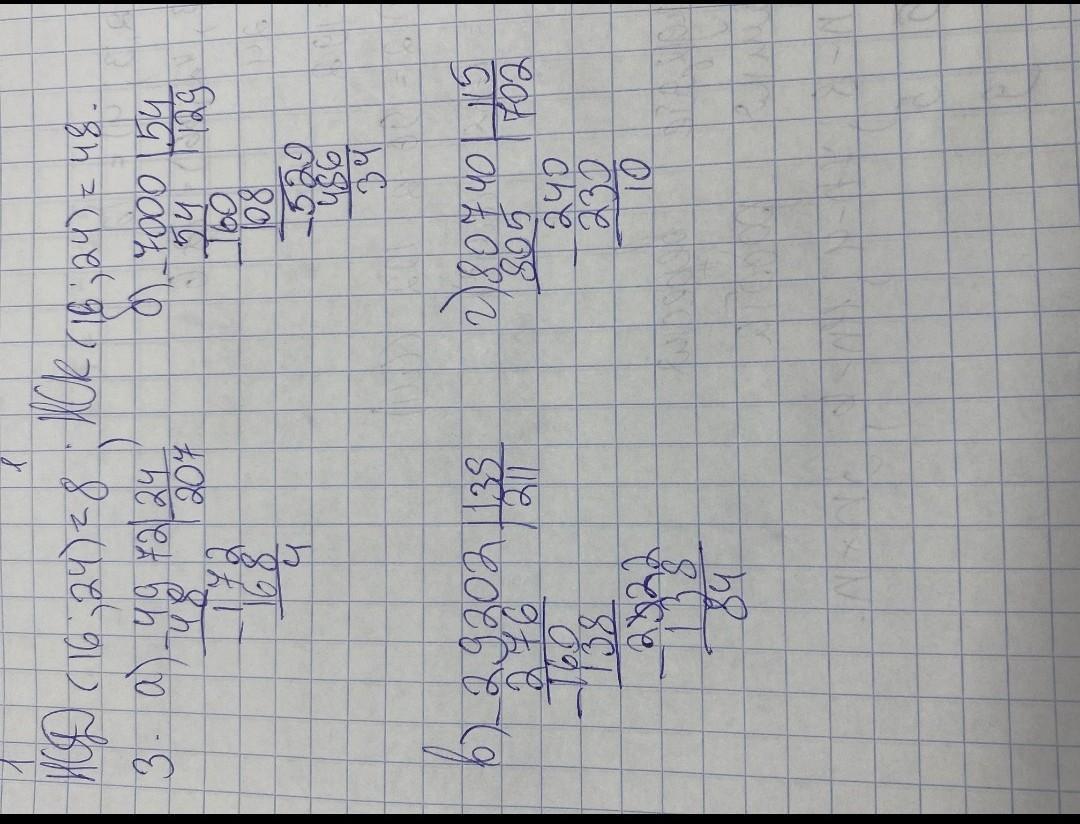 НОД (16; 24) = 8 ; НОК (16; 24) = 48.
3. а) 4972 | 24
– 48 | 207
– 172
168
4
б) 7000 | 54
– 54 | 129
– 160
108
– 520
486
34
в) 29202 | 138
– 276 | 211
– 160
138
– 222
138
84
г) 80740 | 115
805 | 702
– 240
230
10